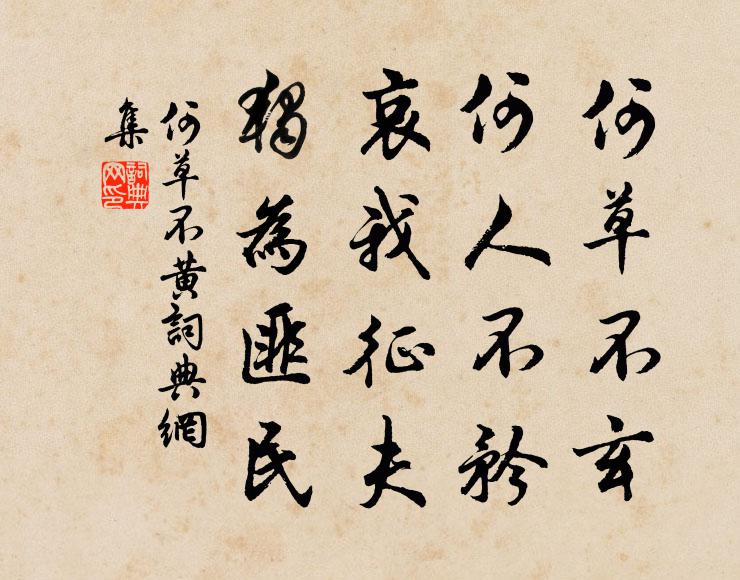 何草不玄
何人不矜
哀我征夫
獨為匪民
何草不黃詞典網
集
詞典
网印